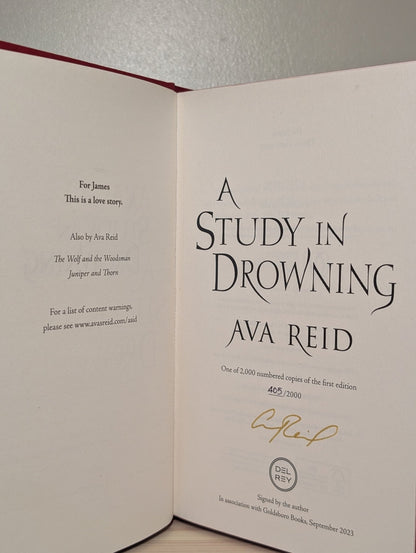 For James
This is a love story.
Also by Ava Reid
The Wolf and the Woodsman
Juniper and Thorn
For a list of content warnings,
please see www.avasreid.com/asid
A
STUDY IN
DROWNING
AVA REID
One of 2,000 numbered copies of the first edition
405/2000
DEL
REY
Signed by the author
In association with Goldsboro Books, September 2023